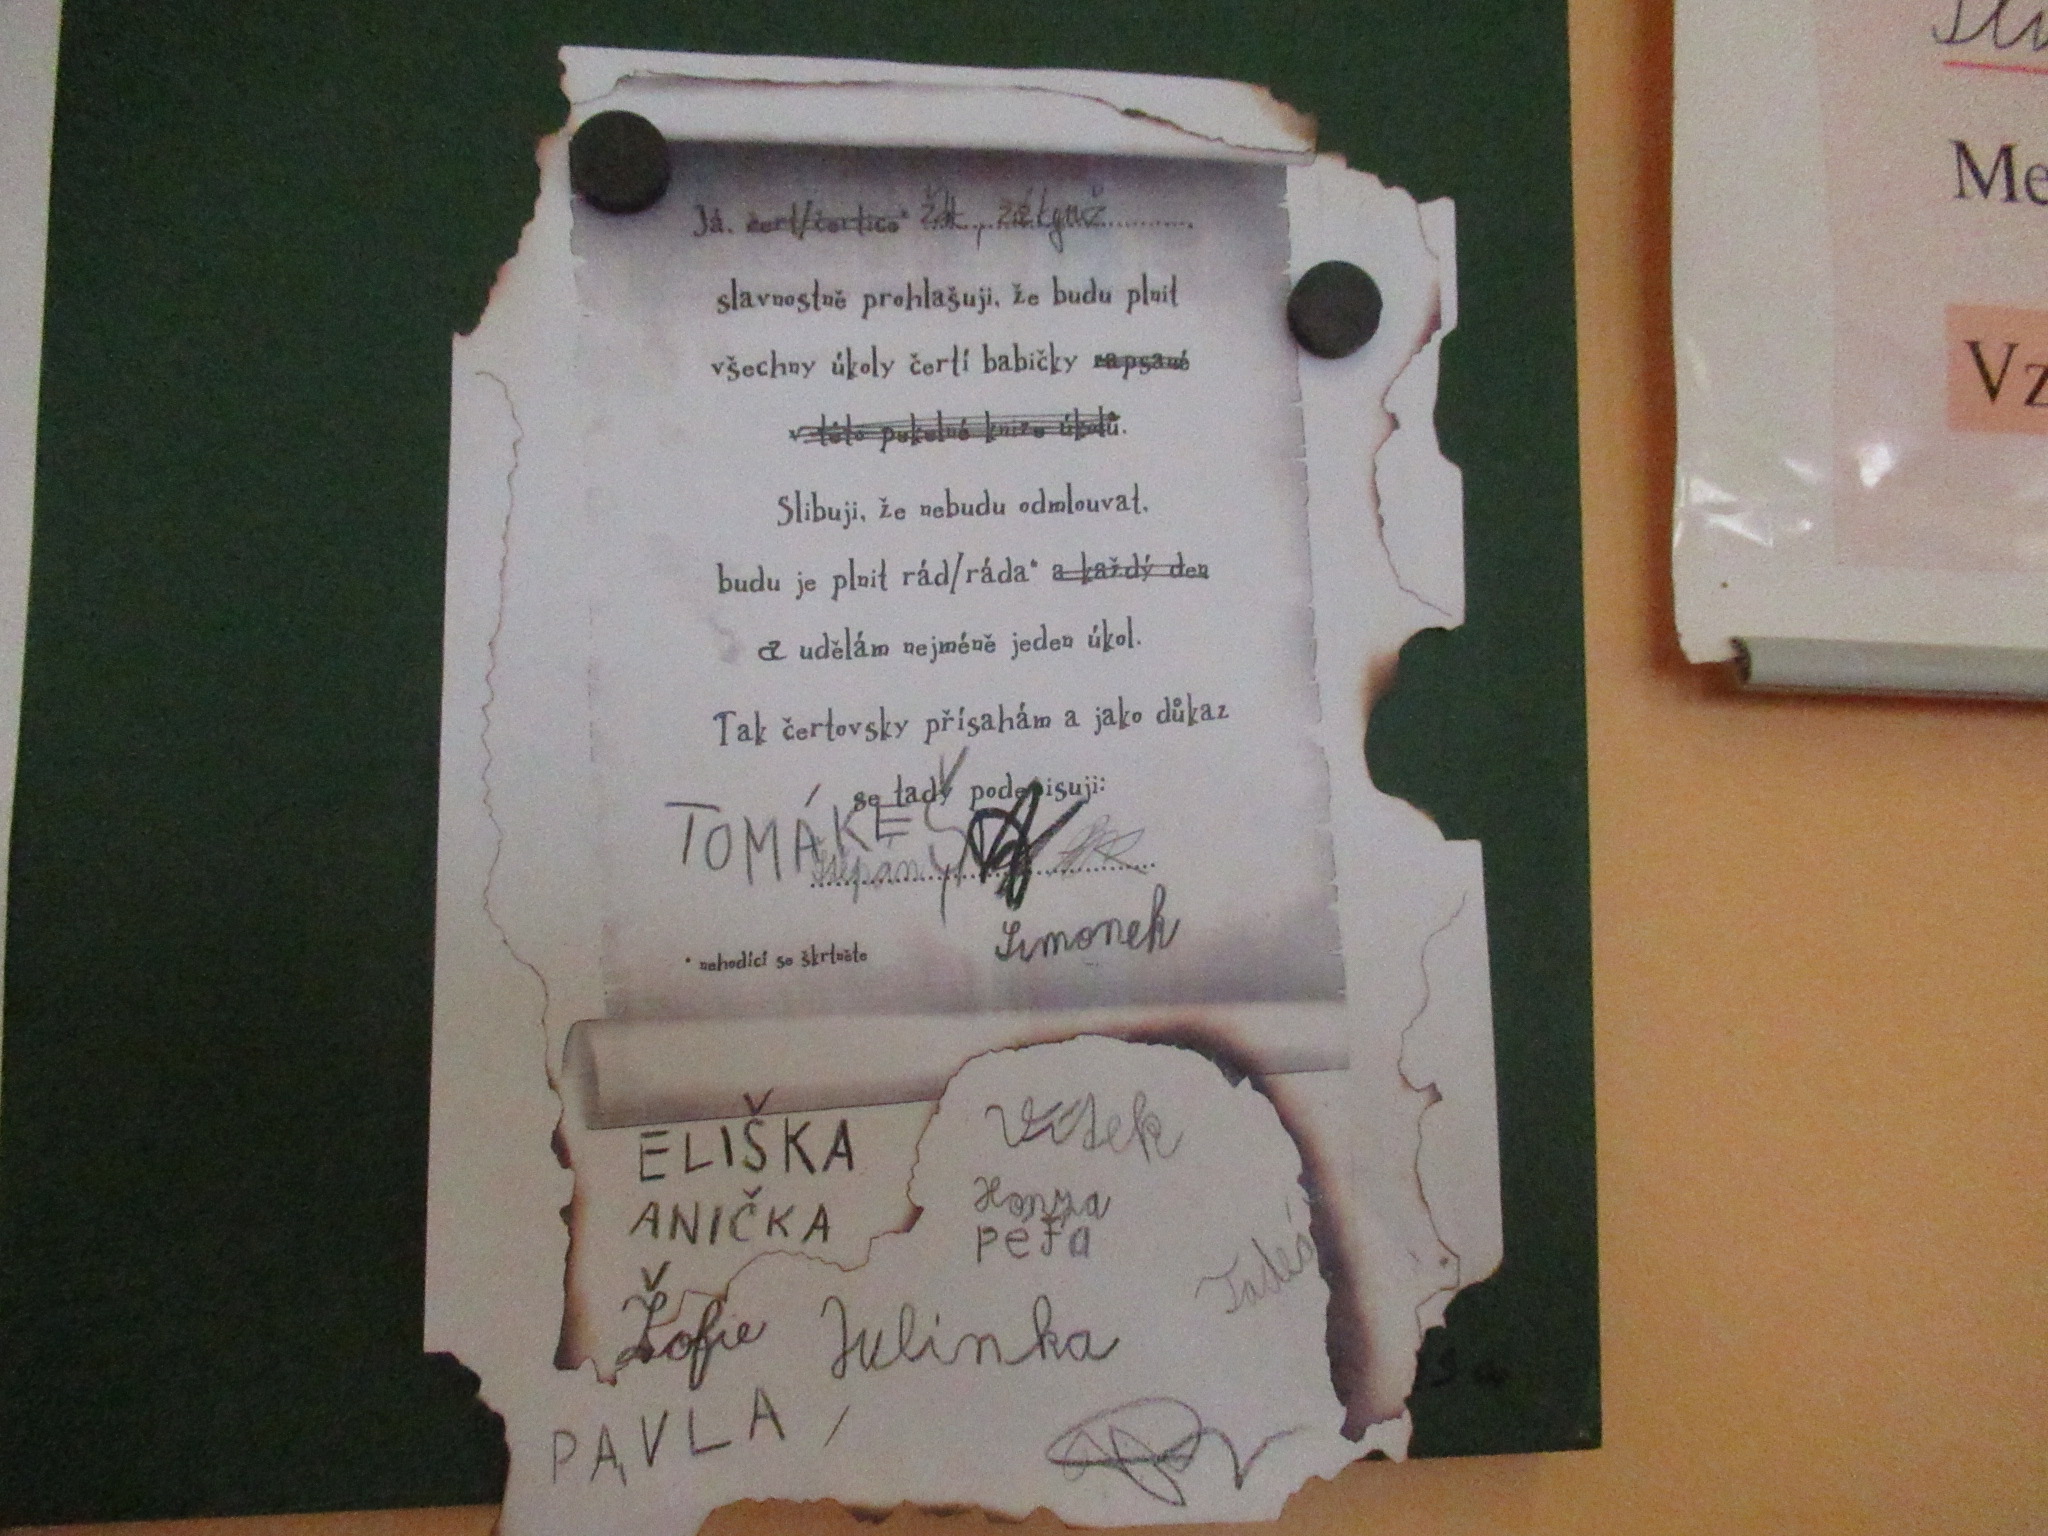 Já, čert/čertice* Žák, žákyně
slavnostně prohlašuji, že budu plnit
všechny úkoly čertí babičky zapsané
v této pekelné knize úkolů.
Slibuji, že nebudu odmlouvat,
budu je plnit rád/ráda* a každý den
a udělám nejméně jeden úkol.
Tak čertovsky přísahám a jako důkaz
se tady podepisuji:
TOMÁKES
Štěpán
Simonek
* nehodící se škrtněte
ELIŠKA
Vítek
ANIČKA
Honza
PéťA
Tadeáš
Žofie Julinka
PAVLA
Me
Vz